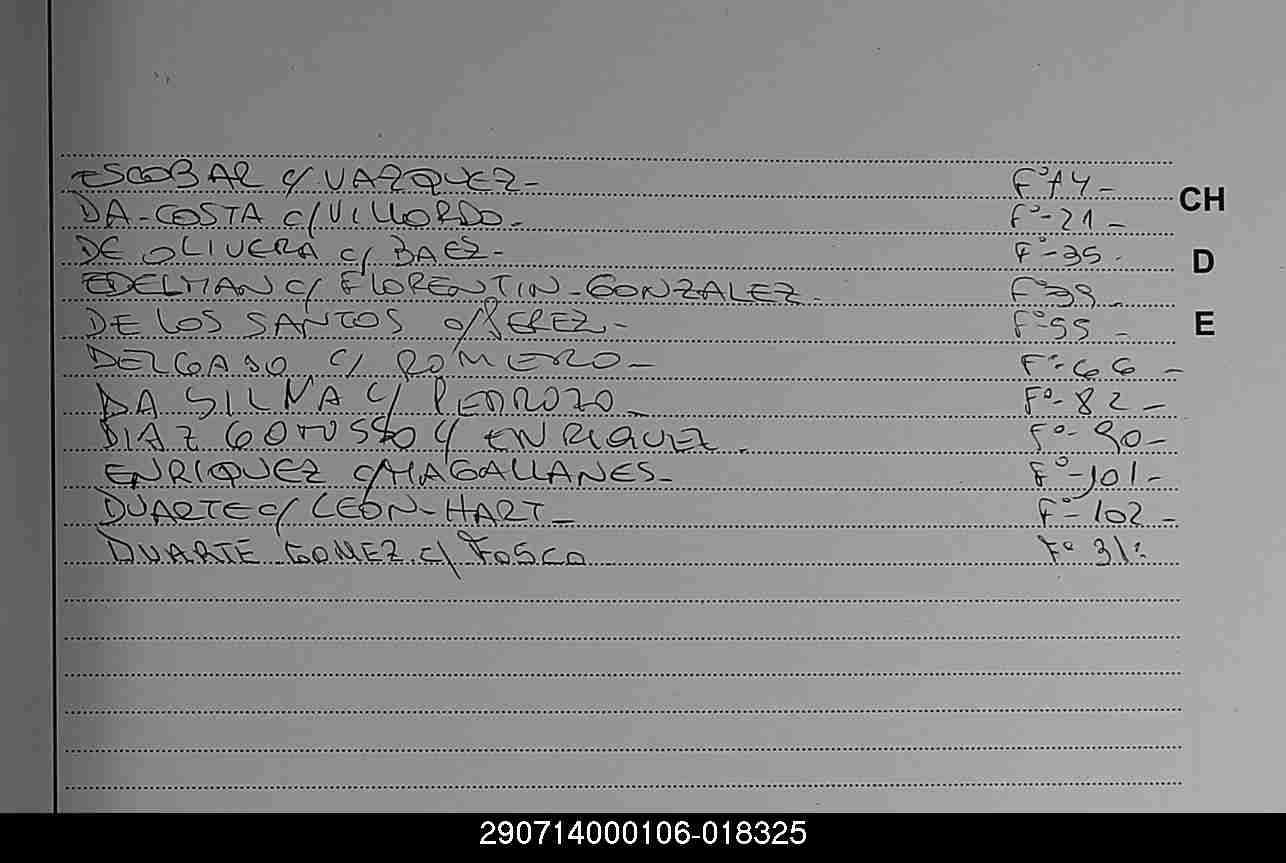 ESCOBAR c/ VAZQUEZ- F° 14-
CH
DA-COSTA c/ VILLORDO. F°-21-
DE OLIVERA c/ BAEZ- F°-35-
D
EDELMAN c/ FLORENTIN-GONZALEZ. F°39-
DE LOS SANTOS c/ PEREZ- F°55-
E
DELGADO c/ ROMERO- F°-66-
DA SILVA c/ PEDROZO- F°-82-
DIAZ c/ ENRIQUEZ. F°-90-
ENRIQUEZ c/ MAGALLANES- F°-101-
DUARTE c/ LEON-HART- F°-102-
DUARTE GOMEZ c/ FOSCO F° 31
290714000106-018325